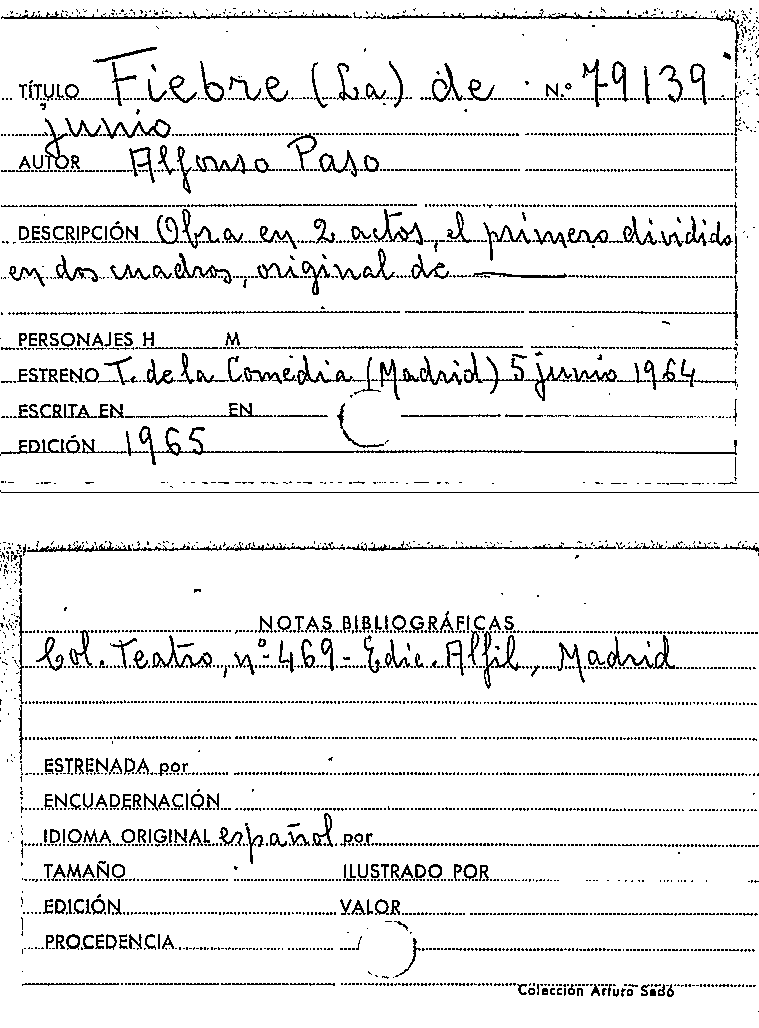 TÍTULO Fiebre (La) de N.º 79139
junio
AUTOR Alfonso Paso
DESCRIPCIÓN Obra en 2 actos, el primero dividido
en dos cuadros, original de ———
PERSONAJES H M
ESTRENO T. de la Comedia (Madrid) 5 junio 1964
ESCRITA EN EN
EDICIÓN 1965
NOTAS BIBLIOGRÁFICAS
Col. Teatro, nº 469 - Edic. Alfil, Madrid
ESTRENADA por
ENCUADERNACIÓN
IDIOMA ORIGINAL español por
TAMAÑO ILUSTRADO POR
EDICIÓN VALOR
PROCEDENCIA
Colección Arturo Sedó